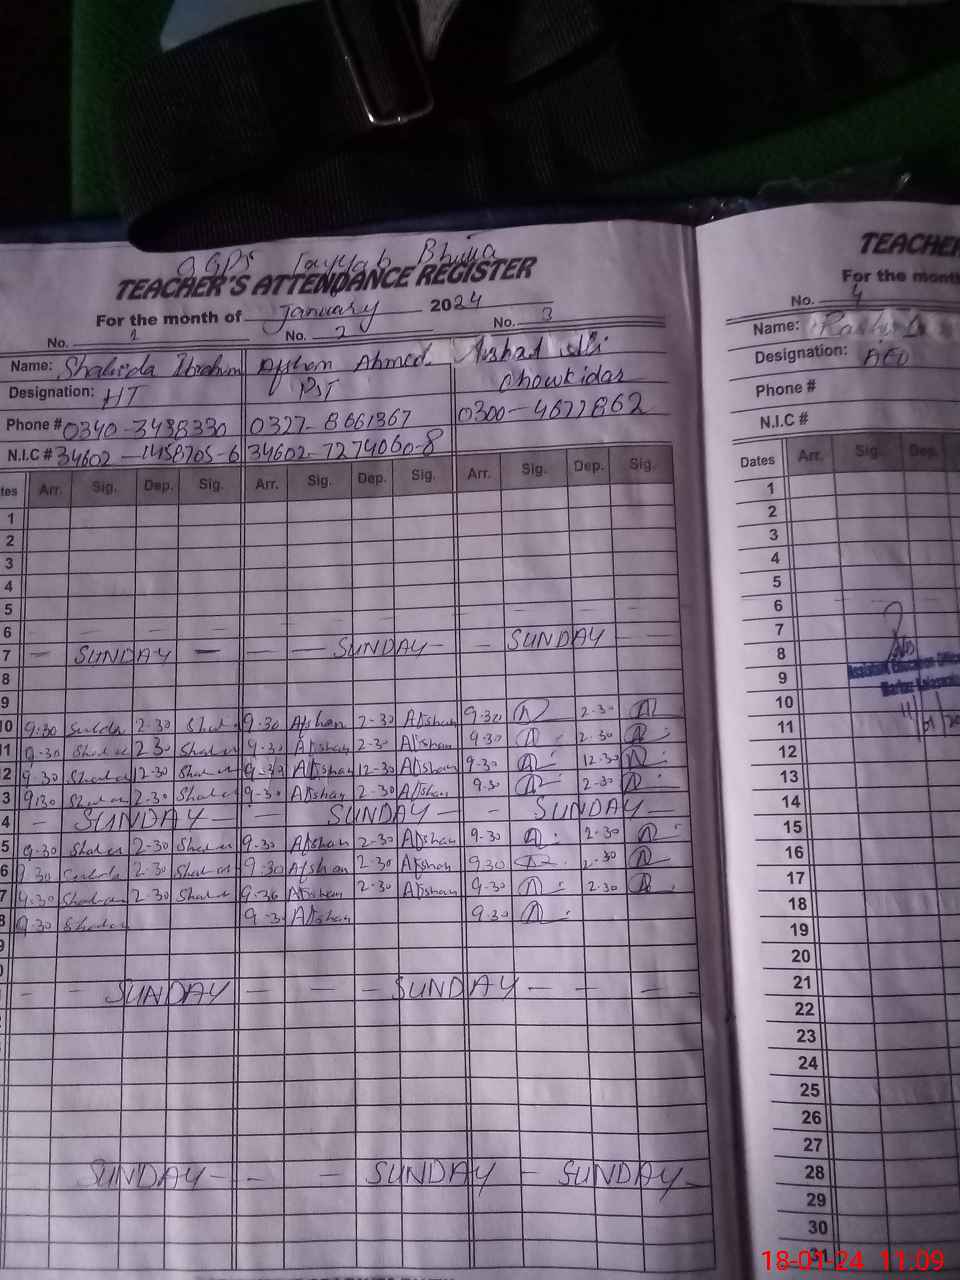 GGPS Tayyab Bhulla
TEACHER'S ATTENDANCE REGISTER
For the month of January 2024
No. 1 No. 2 No. 3
Name: Shahida Ibrahim Afshan Ahmed Arshad Ali
Designation: HT PST Chowkidar
Phone # 0340-3438330 0327-8661367 0300-4677862
N.I.C # 34602-1458705-6 34602-7274060-8
tes Arr. Sig. Dep. Sig. Arr. Sig. Dep. Sig. Arr. Sig. Dep. Sig.
1
2
3
4
5
6
7 — SUNDAY — — — SUNDAY — — SUNDAY
8
9
10 9:30 2-30 9-30 Afshan 2-30 Afshan 9-30 2-30
11 9-30 2-30 9-30 Afshan 2-30 Afshan 9-30 2-30
2 9-30 12-30 9-30 Afshan 12-30 Afshan 9-30 12-30
3 9:30 2-30 9-30 Afshan 2-30 Afshan 9-30 2-30
4 — SUNDAY — — SUNDAY — SUNDAY —
5 9-30 2-30 9-30 Afshan 2-30 Afshan 9-30 2-30
6 9.30 2-30 9-30 Afshan 2-30 Afshan 9.30 2-30
7 9.30 2-30 9-30 Afshan 2-30 Afshan 9-30 2-30
8 9-30 9-30 Afshan 9-30
9
0
— — SUNDAY — — — SUNDAY — — — —
SUNDAY — — — SUNDAY — SUNDAY —
TEACHE
For the mont
No. 4
Name:
Designation: AEO
Phone #
N.I.C #
Dates Arr. Sig. Dep.
1
2
3
4
5
6
7
8
Assistant Education Office
9
Markaz
10
11
11/01/20
12
13
14
15
16
17
18
19
20
21
22
23
24
25
26
27
28
29
30
31
18-01-24 11:09